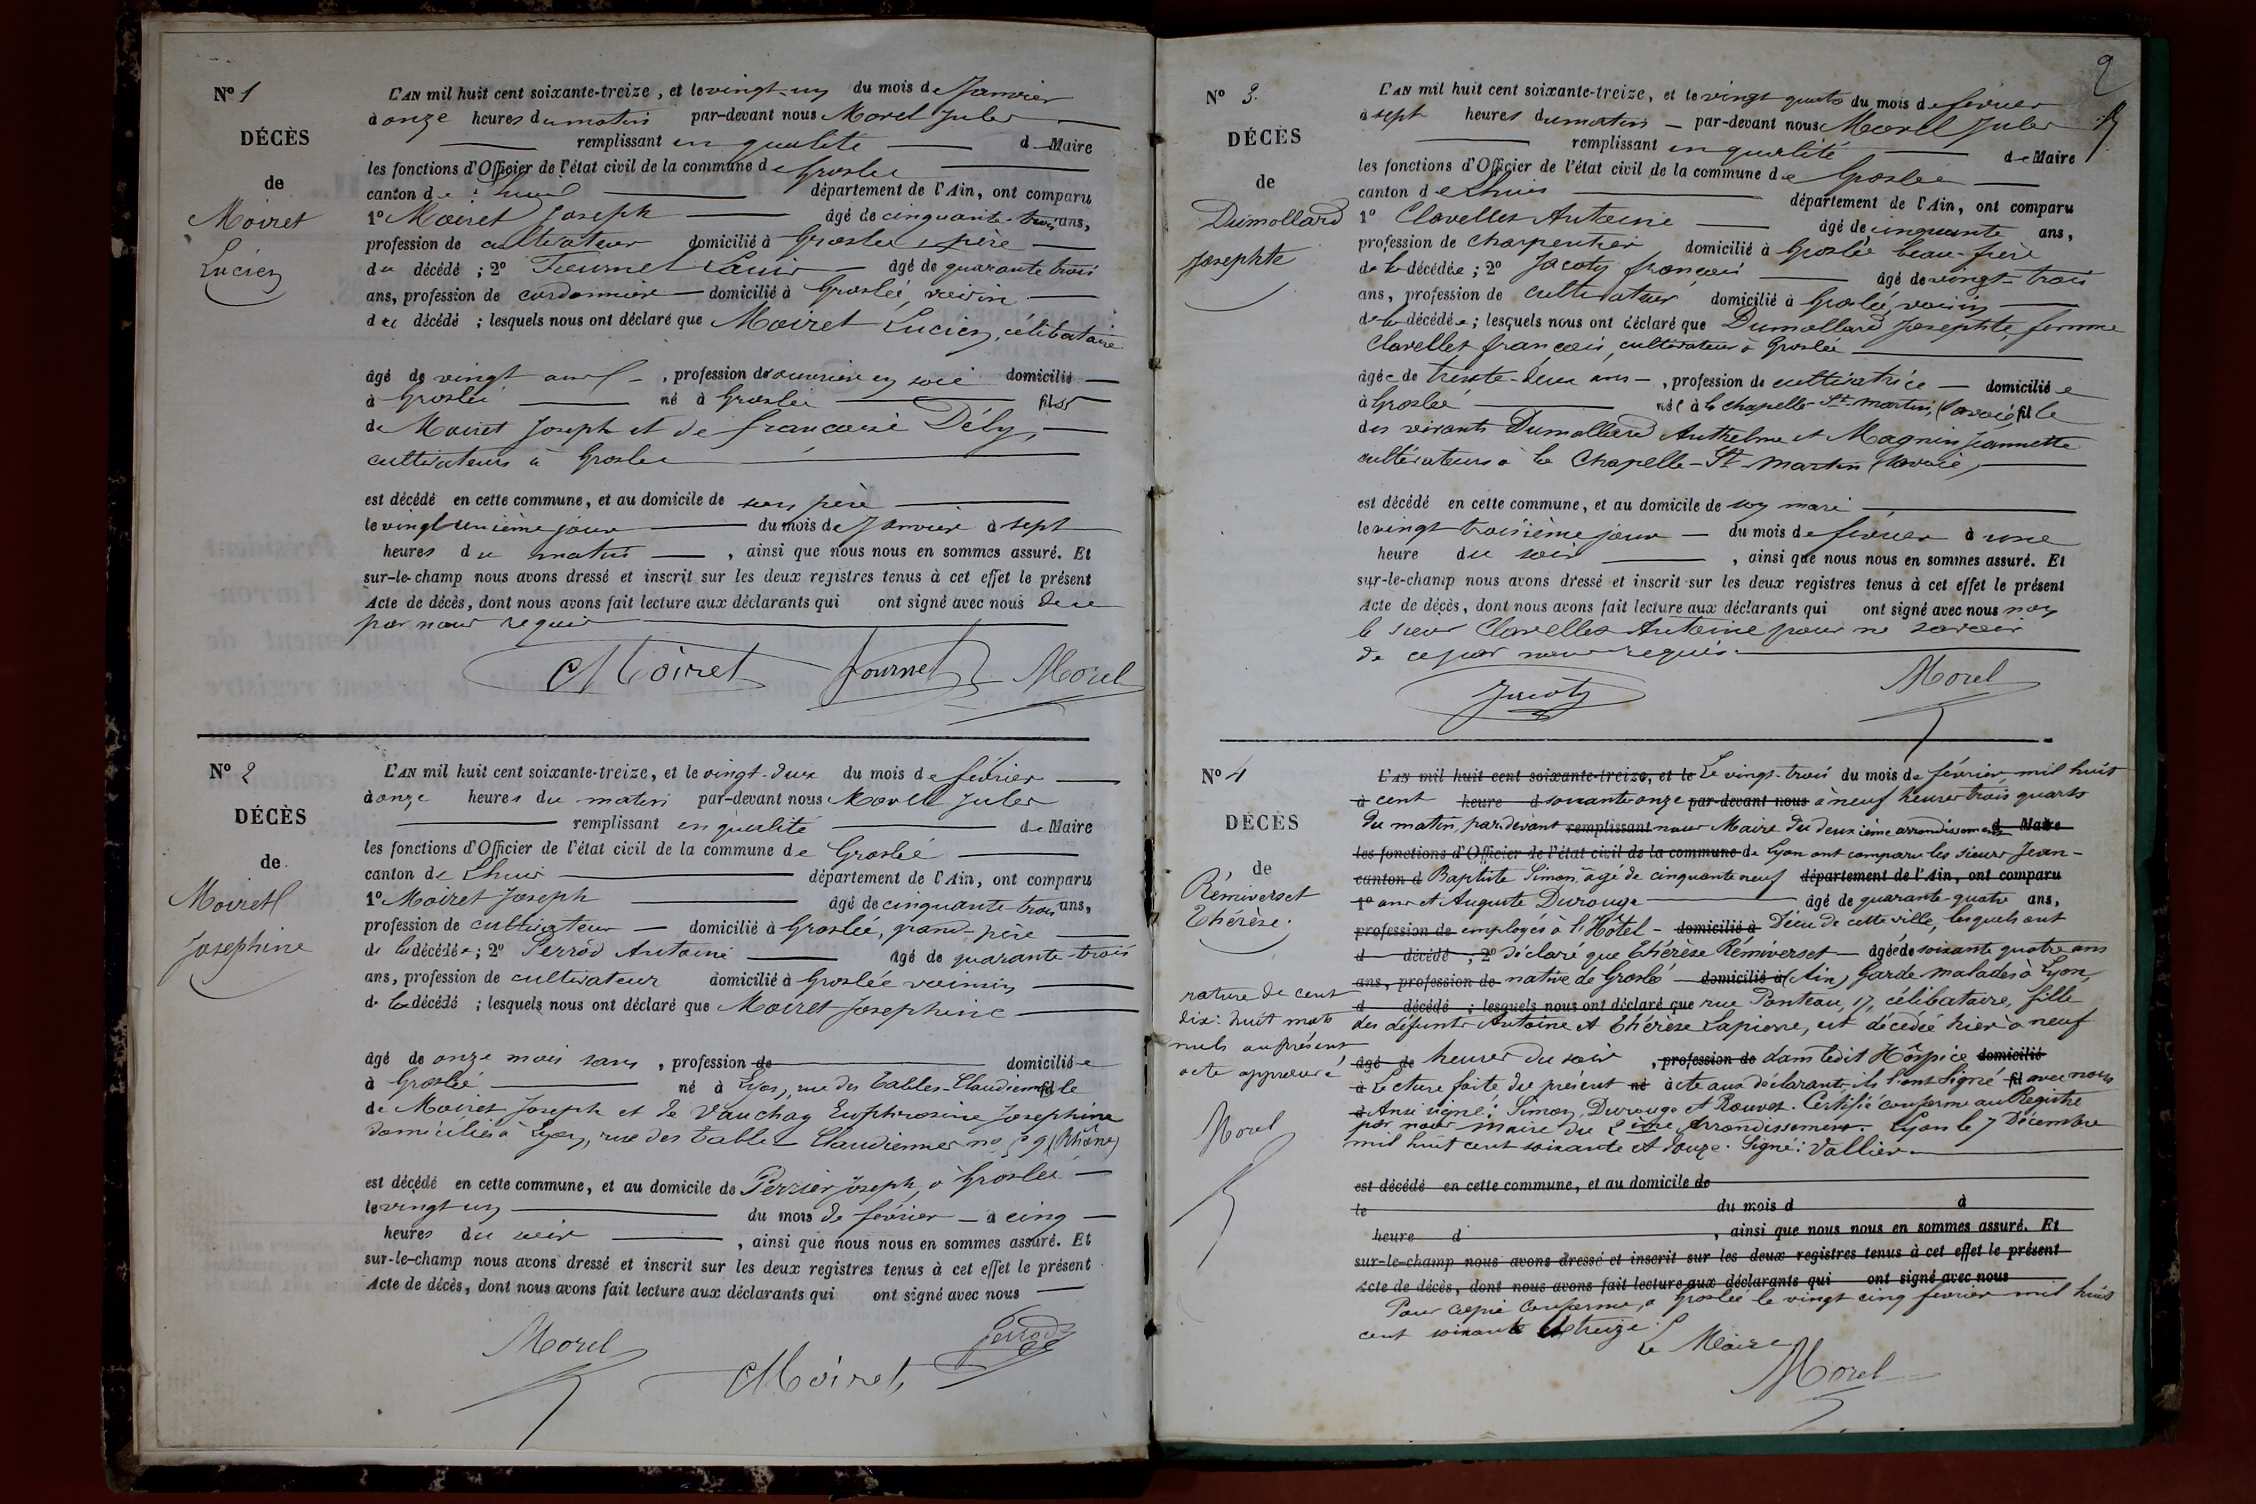 Nº 1
DÉCÈS
de
Moiret
Lucien
L'AN mil huit cent soixante-treize, et le vingt-un du mois de Janvier
à onze heures du matin par-devant nous Morel Jules
remplissant en qualité de Maire
les fonctions d'Officier de l'état civil de la commune de Groslée
canton de Lhuis département de l'Ain, ont comparu
1º Moiret Joseph âgé de cinquante-trois ans,
profession de cultivateur domicilié à Groslée, père
du décédé ; 2º Fournet Louis âgé de quarante trois
ans, profession de cordonnier domicilié à Groslée, voisin
du décédé ; lesquels nous ont déclaré que Moiret Lucien, célibataire
âgé de vingt ans, profession d'ouvrier en soie domicilié
à Groslée né à Groslée fils
de Moiret Joseph et de françoise Déby,
cultivateurs à Groslée
est décédé en cette commune, et au domicile de son père
le vingt unième jour du mois de Janvier à sept
heures du matin, ainsi que nous nous en sommes assuré. Et
sur-le-champ nous avons dressé et inscrit sur les deux registres tenus à cet effet le présent
Acte de décès, dont nous avons fait lecture aux déclarants qui ont signé avec nous de ce
par nous requis
Moiret Fournet Morel
Nº 2
DÉCÈS
de
Moiret
Josephine
L'AN mil huit cent soixante-treize, et le vingt-deux du mois de février
à onze heures du matin par-devant nous Morel Jules
remplissant en qualité de Maire
les fonctions d'Officier de l'état civil de la commune de Groslée
canton de Lhuis département de l'Ain, ont comparu
1º Moiret Joseph âgé de cinquante-trois ans,
profession de cultivateur domicilié à Groslée, grand-père
de la décédée ; 2º Perrod Antoine âgé de quarante-trois
ans, profession de cultivateur domicilié à Groslée voisin
de la décédé ; lesquels nous ont déclaré que Moiret Josephine
âgé de onze mois sans, profession de domiciliée
à Groslée né à Lyon, rue des Tables-Claudiennes fille
de Moiret Joseph et de Vauchay Euphrosine Josephine
domiciliés à Lyon, rue des tables Claudiennes no 9 (Rhône)
est décédé en cette commune, et au domicile de Perrier Joseph, à Groslée
le vingt un du mois de février à cinq
heures du soir, ainsi que nous nous en sommes assuré. Et
sur-le-champ nous avons dressé et inscrit sur les deux registres tenus à cet effet le présent
Acte de décès, dont nous avons fait lecture aux déclarants qui ont signé avec nous
Morel Moiret Perrod
2
Nº 3.
DÉCÈS
de
Dumollard
Josephte
L'AN mil huit cent soixante-treize, et le vingt quatre du mois de fevrier
à sept heures du matin par-devant nous Morel Jules
remplissant en qualité de Maire
les fonctions d'Officier de l'état civil de la commune de Groslée
canton de Lhuis département de l'Ain, ont comparu
1º Clavellet Antoine âgé de cinquante ans,
profession de charpentier domicilié à Groslée beau-frère
de la décédée ; 2º Jacoty françois âgé de vingt-trois
ans, profession de cultivateur domicilié à Groslée, voisin
de la décédée ; lesquels nous ont déclaré que Dumollard Josephte, femme
Clavellet françois, cultivateur à Groslée
âgée de trente-deux ans, profession de cultivatrice domiciliée
à Groslée née à la chapelle St-martin, (savoie) fille
des vivants Dumollard Anthelme et Magnin Jeannette
cultivateurs à la Chapelle-St-martin (savoie),
est décédé en cette commune, et au domicile de son mari
le vingt troisième jour du mois de février à une
heure du soir, ainsi que nous nous en sommes assuré. Et
sur-le-champ nous avons dressé et inscrit sur les deux registres tenus à cet effet le présent
Acte de décès, dont nous avons fait lecture aux déclarants qui ont signé avec nous non
le sieur Clavellet Antoine pour ne savoir
de ce par nous requis
Jacoty Morel
Nº 4
DÉCÈS
de
Rémiverset
Thérèse.
rature de cent
dix-huit mots
nuls au présent
acte approuvé
Morel
L'AN mil huit cent soixante-treize, et le Le vingt-trois du mois de février mil huit
à cent heure d soixante onze par-devant nous à neuf heures trois quarts
du matin, par devant remplissant nous Maire du deuxième arrondissement d Maire
les fonctions d'Officier de l'état civil de la commune de Lyon ont comparu les sieurs Jean-
canton d Baptiste Simon, âgé de cinquante neuf département de l'Ain, ont comparu
1º ans et Auguste Durouge âgé de quarante-quatre ans,
profession de employés à l'Hôtel- domicilié à Dieu de cette ville, lesquels ont
d décédé ; 2º déclaré que Thérèse Rémiverset âgée de soixante quatre ans
ans, profession de native de Groslée domicilié à (Ain) Garde malades à Lyon,
d décédé ; lesquels nous ont déclaré que rue Ponteau, 17, célibataire, fille
des défunts Antoine et Thérèse Lapierre, est décédée hier à neuf
âgé de heures du soir, profession de dans ledit Hospice domicilié
à Lecture faite du présent né acte aux déclarants, ils l'ont signé fil avec nous
d Ainsi signé: Simon, Durouge et Rouvet. Certifié conforme au Registre
par nous maire du 2ème Arrondissement. Lyon le 7 Décembre
mil huit cent soixante et douze. Signé: Vallier.
est décédé en cette commune, et au domicile de
le du mois d à
heure d , ainsi que nous nous en sommes assuré. Et
sur-le-champ nous avons dressé et inscrit sur les deux registres tenus à cet effet le présent
Acte de décès, dont nous avons fait lecture aux déclarants qui ont signé avec nous
Pour copie conforme, à Groslée le vingt cinq fevrier mil huit
cent soixante et treize.
Le Maire
Morel